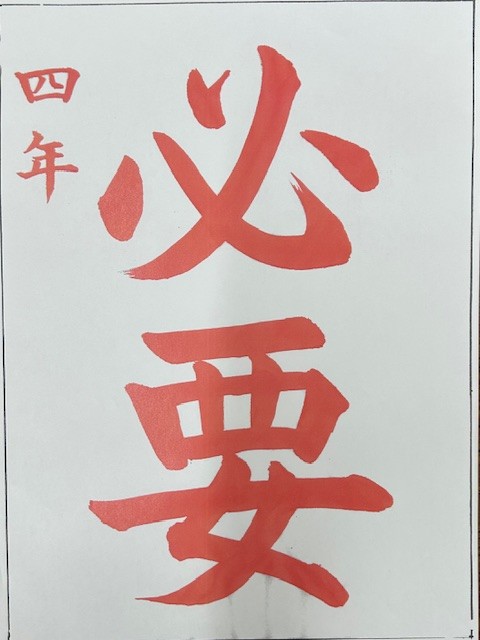 必要
四年